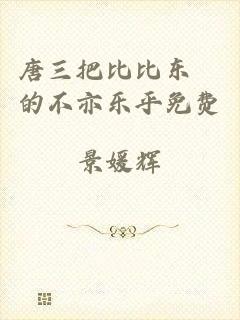 唐三把比比东
的不亦乐乎免费
景媛辉